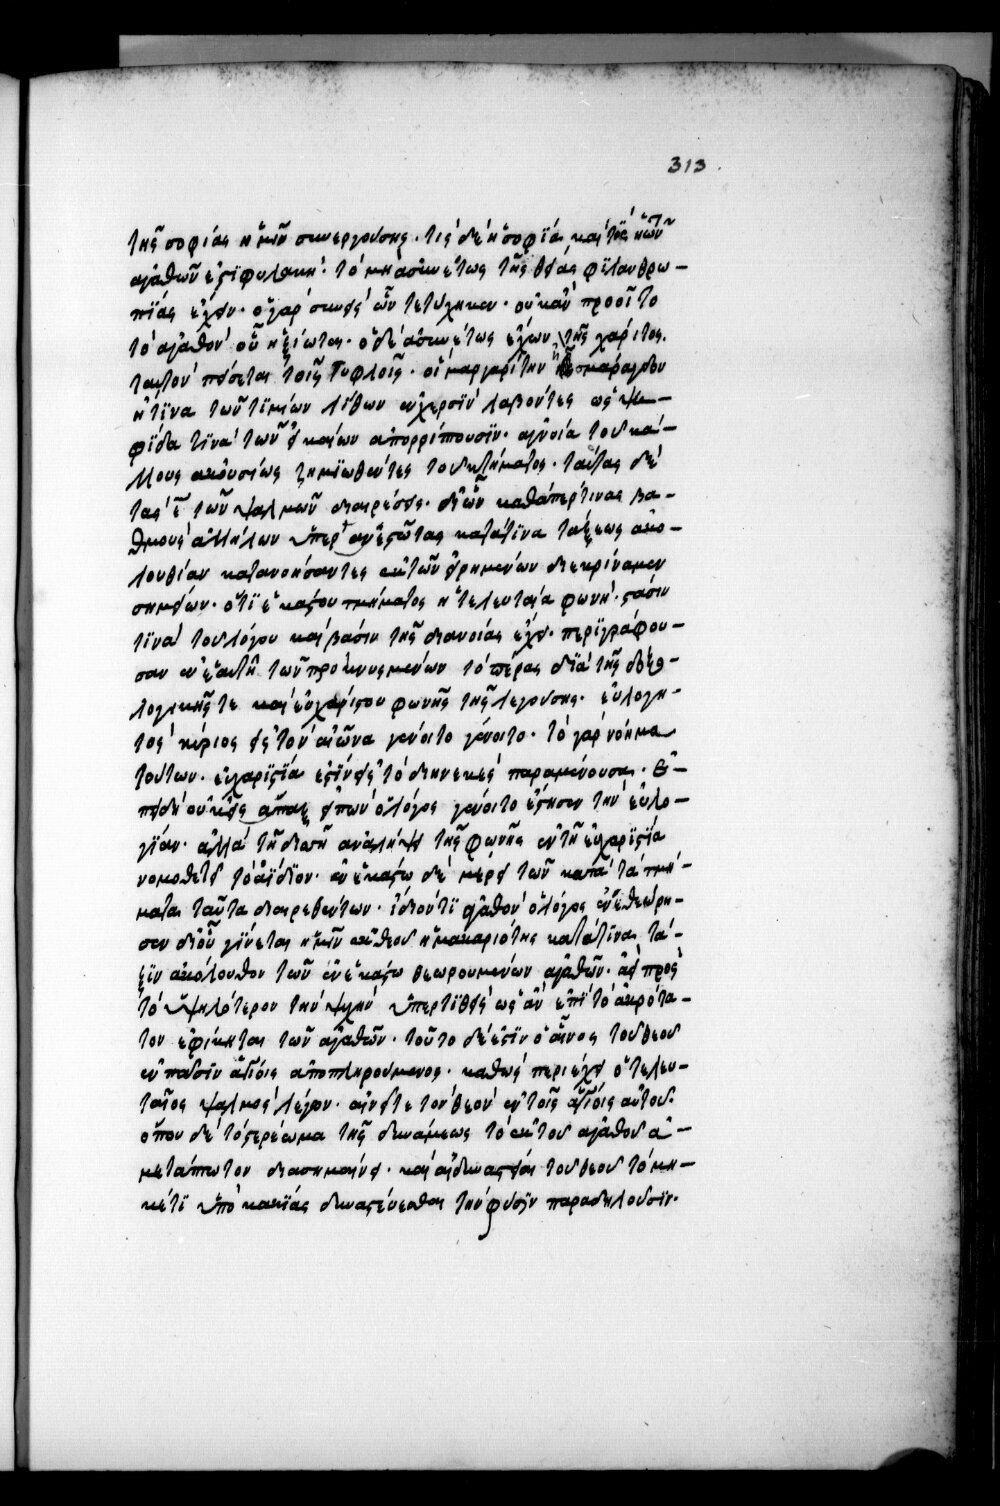 313
τῆς σοφίας ἡμῶν συνεργούσης. τίς δὲ ἡ σοφία καὶ τίς ἡ τῶν
ἀγαθῶν ἐπιφυλακή. τὸ μὴ ἀσυνέτως τῆς θείας φιλανθρω-
πίας ἔχειν. ὁ γὰρ συνεὶς ὧν τετύχηκεν. οὐκ ἂν προοῖτο
τὸ ἀγαθὸν οὗ ἠξίωται. ὁ δὲ ἀσυνέτως ἔχων τῆς χάριτος.
ταυτὸν πείσεται τοῖς τυφλοῖς. οἳ μαργαρίτην ἢ σμάραγδον
ἤ τινα τῶν τιμίων λίθων ἐν χερσὶν λαβόντες ὡς ψη-
φῖδα τινὰ τῶν εἰκαίων ἀπορρίπτουσιν. ἀγνοίᾳ τοῦ κά-
λλους ἀκουσίως ζημιωθέντες τοῦ κτήματος. ταύτας δὲ
τὰς ε τῶν ψαλμῶν διαιρέσεις. δι' ὧν καθάπερ τινὰς βα-
θμοὺς ἀλλήλων ὑπερανεστῶτας κατά τινα τάξεως ἀκο-
λουθίαν κατανοήσαντες ἐκ τῶν εἰρημένων διεκρίναμεν
σημείων. ὅτι ἑκάστου τμήματος ἡ τελευταία φωνὴ. στάσιν
τινὰ τοῦ λόγου καὶ βάσιν τῆς διανοίας ἔχει. περιγράφου-
σαν ἐν ἑαυτῇ τῶν προηνυσμένων τὸ πέρας διὰ τῆς δοξο-
λογικῆς τε καὶ εὐχαρίστου φωνῆς τῆς λεγούσης. εὐλογη-
τὸς κύριος εἰς τὸν αἰῶνα γένοιτο γένοιτο. τὸ γὰρ νόημα
τούτων. εὐχαριστία ἐστὶν εἰς τὸ διηνεκὲς παραμένουσα. ἐ-
πειδὴ οὐκ εἰς ἅπαξ εἰπὼν ὁ λόγος γένοιτο ἔστησεν τὴν εὐλο-
γίαν. ἀλλὰ τῇ δισσῇ ἀναλήψει τῆς φωνῆς ἐν τῇ εὐχαριστίᾳ
νομοθετεῖ τὸ ἀΐδιον. ἐν ἑκάστῳ δὲ μέρει τῶν κατὰ τὰ τμή-
ματα ταῦτα διαιρεθέντων. ἴδιόν τι ἀγαθὸν ὁ λόγος ἐνεθεώρη-
σεν δι' οὗ γίνεται ἡμῖν ἐκ θεοῦ ἡ μακαριότης κατά τινα τά-
ξιν ἀκόλουθον τῶν ἐν ἑκάστῳ θεωρουμένων ἀγαθῶν. ἀεὶ πρὸς
τὸ ὑψηλότερον τὴν ψυχὴν ὑπερτιθεὶς ὡς ἂν ἐπὶ τὸ ἀκρότα-
τον ἐφίκηται τῶν ἀγαθῶν. τοῦτο δέ ἐστιν ὁ αἶνος τοῦ θεοῦ
ἐν πᾶσιν ἁγίοις ἀποπληρούμενος. καθὼς περιέχει ὁ τελευ-
ταῖος ψαλμὸς λέγων. αἰνεῖτε τὸν θεὸν ἐν τοῖς ἁγίοις αὐτοῦ.
ὅπου δὲ τὸ στερέωμα τῆς δυνάμεως τὸ ἐκ τοῦ ἀγαθοῦ ἀ-
μετάπτωτον διασημαίνει. καὶ αἱ δυναστεῖαι τοῦ θεοῦ τὸ μη-
κέτι ὑπὸ κακίας δυναστεύεσθαι τὴν φύσιν παραδηλοῦσιν.